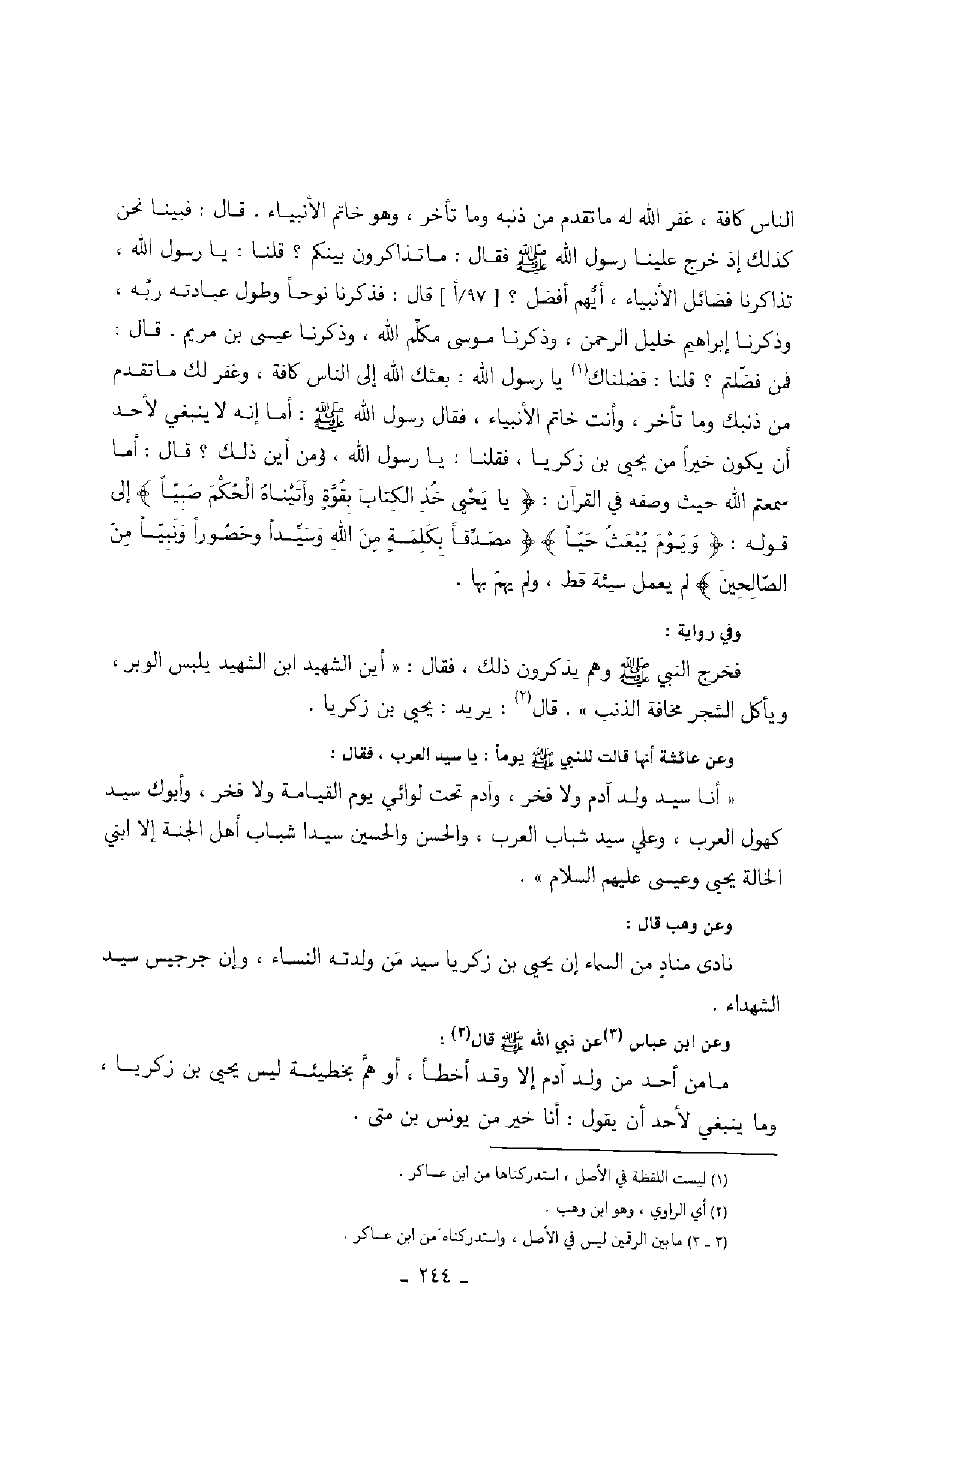 الناس كافة ، غفر الله له ماتقدم من ذنبه وما تأخر ، وهو خاتم الأنبياء . قال : فبينا نحن
كذلك إذ خرج علينا رسول الله ﷺ فقال : ماتذاكرون بينكم ؟ قلنا : يا رسول الله ،
تذاكرنا فضائل الأنبياء ، أيُّهم أفضل ؟ [ ٩٧/أ ] قال : فذكرنا نوحاً وطول عبادته ربَّه ،
وذكرنا إبراهيم خليل الرحمن ، وذكرنا موسى مكلَّم الله ، وذكرنا عيسى بن مريم . قال :
فمن فضّلتم ؟ قلنا : فضلناك(١) يا رسول الله : بعثك الله إلى الناس كافة ، وغفر لك ماتقدم
من ذنبك وما تأخر ، وأنت خاتم الأنبياء ، فقال رسول الله ﷺ : أما إنه لا ينبغي لأحد
أن يكون خيراً من يحيى بن زكريا ، فقلنا : يا رسول الله ، ومن أين ذلك ؟ قال : أما
سمعتم الله حيث وصفه في القرآن : ﴿ يا يَحْيى خُذِ الكتابَ بقُوَّةٍ وآتَيْناهُ الْحُكْمَ صَبِيّاً ﴾ إلى
قوله : ﴿ وَيَوْمَ يُبْعَثُ حَيّاً ﴾ ﴿ مصَدِّقاً بكَلِمَةٍ مِنَ اللهِ وَسَيِّداً وحَصُوراً وَنَبِيّاً مِنَ
الصّالِحِينَ ﴾ لم يعمل سيئة قط ، ولم يهمّ بها .
وفي رواية :
فخرج النبي ﷺ وهم يذكرون ذلك ، فقال : « أين الشهيد ابن الشهيد يلبس الوبر ،
ويأكل الشجر مخافة الذنب » . قال(٢) : يريد : يحيى بن زكريا .
وعن عائشة أنها قالت للنبي ﷺ يوماً : يا سيد العرب ، فقال :
« أنا سيد ولد آدم ولا فخر ، وآدم تحت لوائي يوم القيامة ولا فخر ، وأبوك سيد
كهول العرب ، وعلي سيد شباب العرب ، والحسن والحسين سيدا شباب أهل الجنة إلا ابني
الخالة يحيى وعيسى عليهم السلام » .
وعن وهب قال :
نادى منادٍ من السماء إن يحيى بن زكريا سيد مَن ولدته النساء ، وإن جرجيس سيد
الشهداء .
وعن ابن عباس (٣)عن نبي الله ﷺ قال(٣) :
مامن أحد من ولد آدم إلا وقد أخطأ ، أو همَّ بخطيئة ليس يحيى بن زكريا ،
وما ينبغي لأحد أن يقول : أنا خير من يونس بن متى .
(١) ليست اللفظة في الأصل ، استدركناها من ابن عساكر .
(٢) أي الراوي ، وهو ابن وهب .
(٣ ـ ٣) مابين الرقمين ليس في الأصل ، واستدركناه من ابن عساكر .
ـ ٢٤٤ ـ